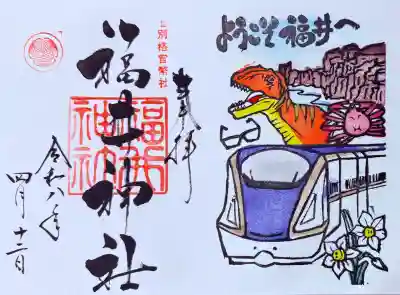 ようこそ福井へ
別格官幣社
奉拝
福井神社
福井神社
令和八年
四月十二日